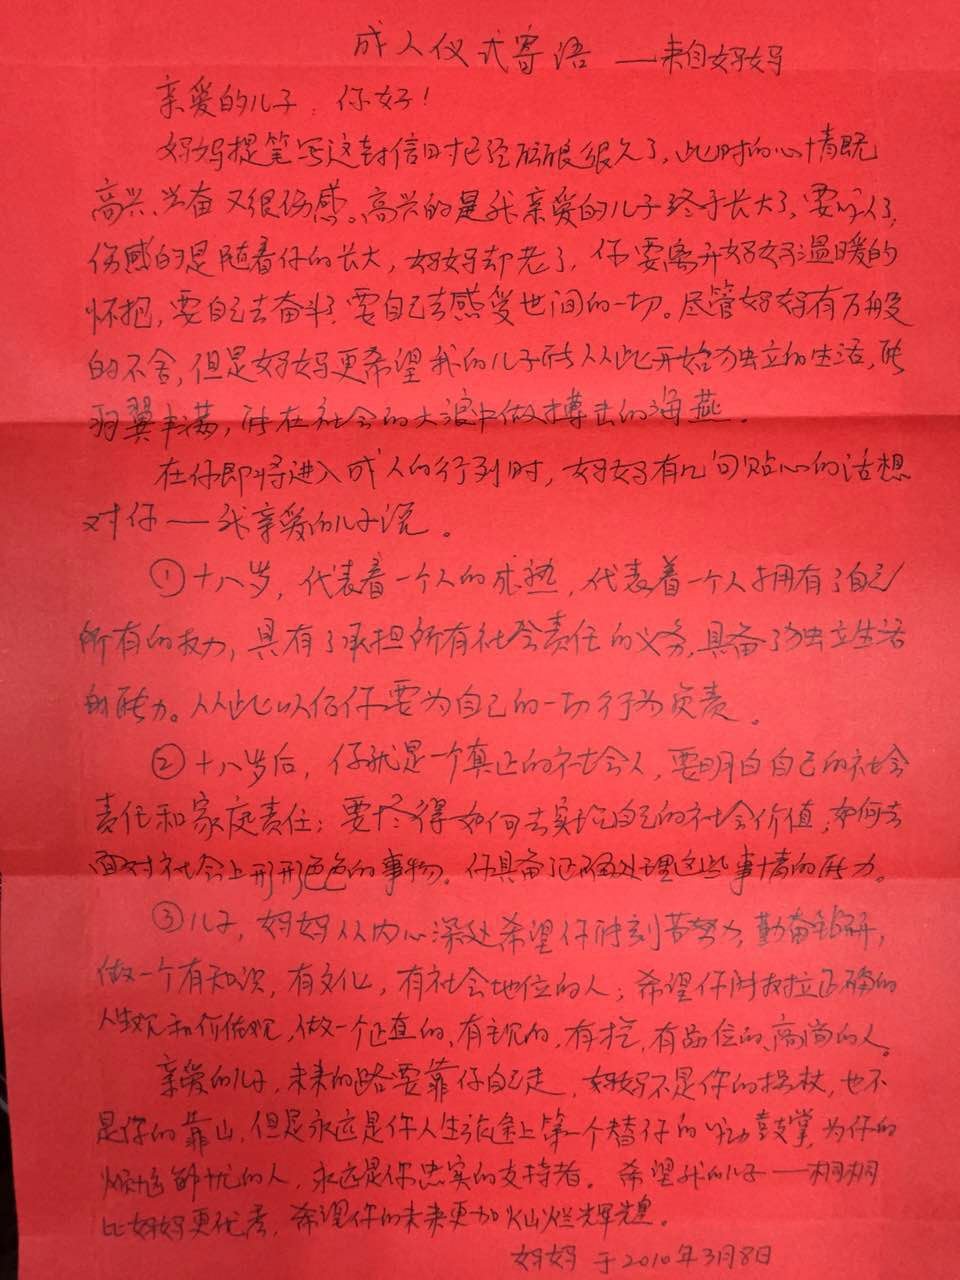 成人仪式寄语 ——来自妈妈
亲爱的儿子:你好!
妈妈提笔写这封信时已经酝酿很久了,此时的心情既
高兴、兴奋又很伤感。高兴的是我亲爱的儿子终于长大了,要成人了,
伤感的是随着你的长大,妈妈却老了,你要离开妈妈温暖的
怀抱,要自己去奋斗,要自己去感受世间的一切。尽管妈妈有万般
的不舍,但是妈妈更希望我的儿子能从此开始独立的生活,能
羽翼丰满,能在社会的大浪中做搏击的海燕。
在你即将进入成人的行列时,妈妈有几句贴心的话想
对你——我亲爱的儿子说。
①十八岁,代表着一个人的成熟,代表着一个人拥有了自己
所有的权力,具有了承担所有社会责任的义务,具备了独立生活
的能力。从此以后你要为自己的一切行为负责。
②十八岁后,你就是一个真正的社会人,要明白自己的社会
责任和家庭责任;要懂得如何去实现自己的社会价值,如何去
面对社会上形形色色的事物。你具备正确处理这些事情的能力。
③儿子,妈妈从内心深处希望你能刻苦努力,勤奋钻研,
做一个有知识,有文化,有社会地位的人;希望你能树立正确的
人生观和价值观,做一个正直的、有主见的、有 有品位的、高尚的人。
亲爱的儿子,未来的路要靠你自己走,妈妈不是你的拐杖,也不
是你的靠山,但是永远是你人生旅途上第一个替你的成功鼓掌,为你的
烦恼解忧的人,永远是你忠实的支持者。希望我的儿子——桐桐
比妈妈更优秀,希望你的未来更加灿烂辉煌。
妈妈 于2010年3月8日